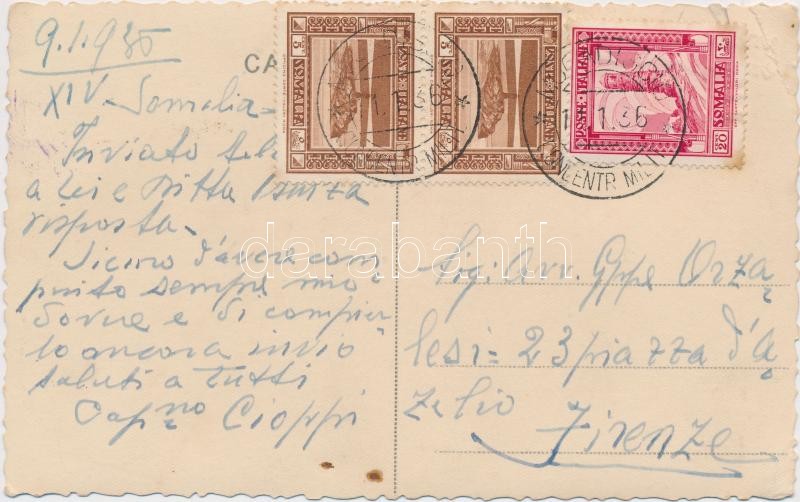 9.1.936
XIV - Somalia -
Inviato tele
a lei e Ditta
risposta -
Sicuro d'avere com
piuto sempre mio
dovere e di compier
lo ancora invio
saluti a tutti
Cap.no Cioppi
CA
POSTE ITALIANE
SOMALIA
CENT 5
POSTE ITALIANE
SOMALIA
CENT 5
POSTE ITALIANE
SOMALIA
CENT 20
1.36
1.36
CONCENTR MIL
Sig. Avv. Gppe Orza
lesi = 23 piazza d'A
zelio
Firenze
darabanth